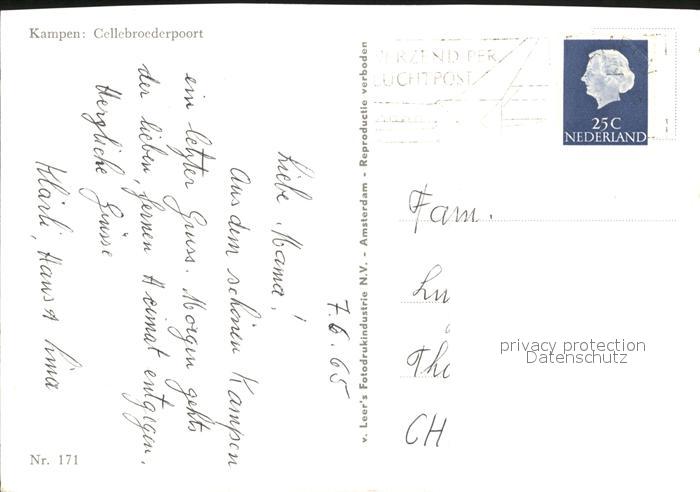 Kampen: Cellebroederpoort
7.6.65
Liebe Mama!
Aus dem schönen Kampen
ein letzter Gruss. Morgen gehts
der lieben, fernen Heimat entgegen.
Herzliche Grüsse
Klärli, Hans &
Nr. 171
v. Leer's Fotodrukindustrie N.V. - Amsterdam - Reproductie verboden
ERZEND PER
LUCHTPOST
25 C
NEDERLAND
Fam.
CH
privacy protection
Datenschutz